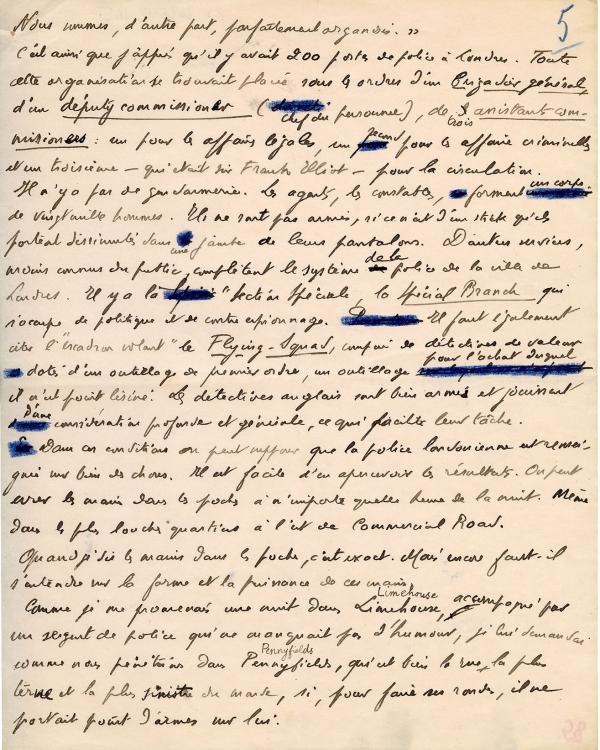 5
Nous sommes, d'autre part, parfaitement organisés. »
C'est ainsi que j'appris qu'il y avait 200 postes de police à Londres. Toute
cette organisation se trouvait placée sous les ordres d'un Brigadier général,
d'un députy commissioner ( chef du personnel), de trois assistants com-
missioners : un pour les affaires légales, un second pour les affaires criminelles
et un troisième - qui était Sir Frank Elliot - pour la circulation.
Il n'y a pas de gendarmerie. Les agents, les constables, forment un corps
de vingt mille hommes. Ils ne sont pas armés, si ce n'est d'un stick qu'ils
portent dissimulés dans une jambe de leurs pantalons. D'autres services,
moins connus du public, complètent le système de la police de la ville de
Londres. Il y a la "section spéciale", la Spécial Branch qui
s'occupe de politique et de contre espionnage. Il faut également
citer l'"escadron volant" le Flying-Squad, composé de détectives de valeur
doté d'un outillage de premier ordre, un outillage pour l'achat duquel
il n'est point lésiné. Les détectives anglais sont bien armés et jouissent
d'une considération profonde et générale, ce qui facilite leur tâche.
Dans ces conditions on peut supposer que la police londonienne est rensei-
gnée sur bien des choses. Il est facile d'en apercevoir les résultats. On peut
errer les mains dans les poches à n'importe quelle heure de la nuit. Même
dans les plus louches quartiers à l'est de Commercial Road.
Quand je dis les mains dans les poches, c'est exact. Mais encore faut-il
s'entendre sur la forme et la puissance de ces mains.
Limehouse
Comme je me promenais une nuit dans Limehouse, accompagné par
un sergent de police qui ne manquait pas d'humour, je lui demandai
Pennyfields
comme nous pénétrions dans Pennyfields, qui est bien la rue la plus
terne et la plus sinistre du monde, si, pour faire ses rondes, il ne
portait point d'armes sur lui.